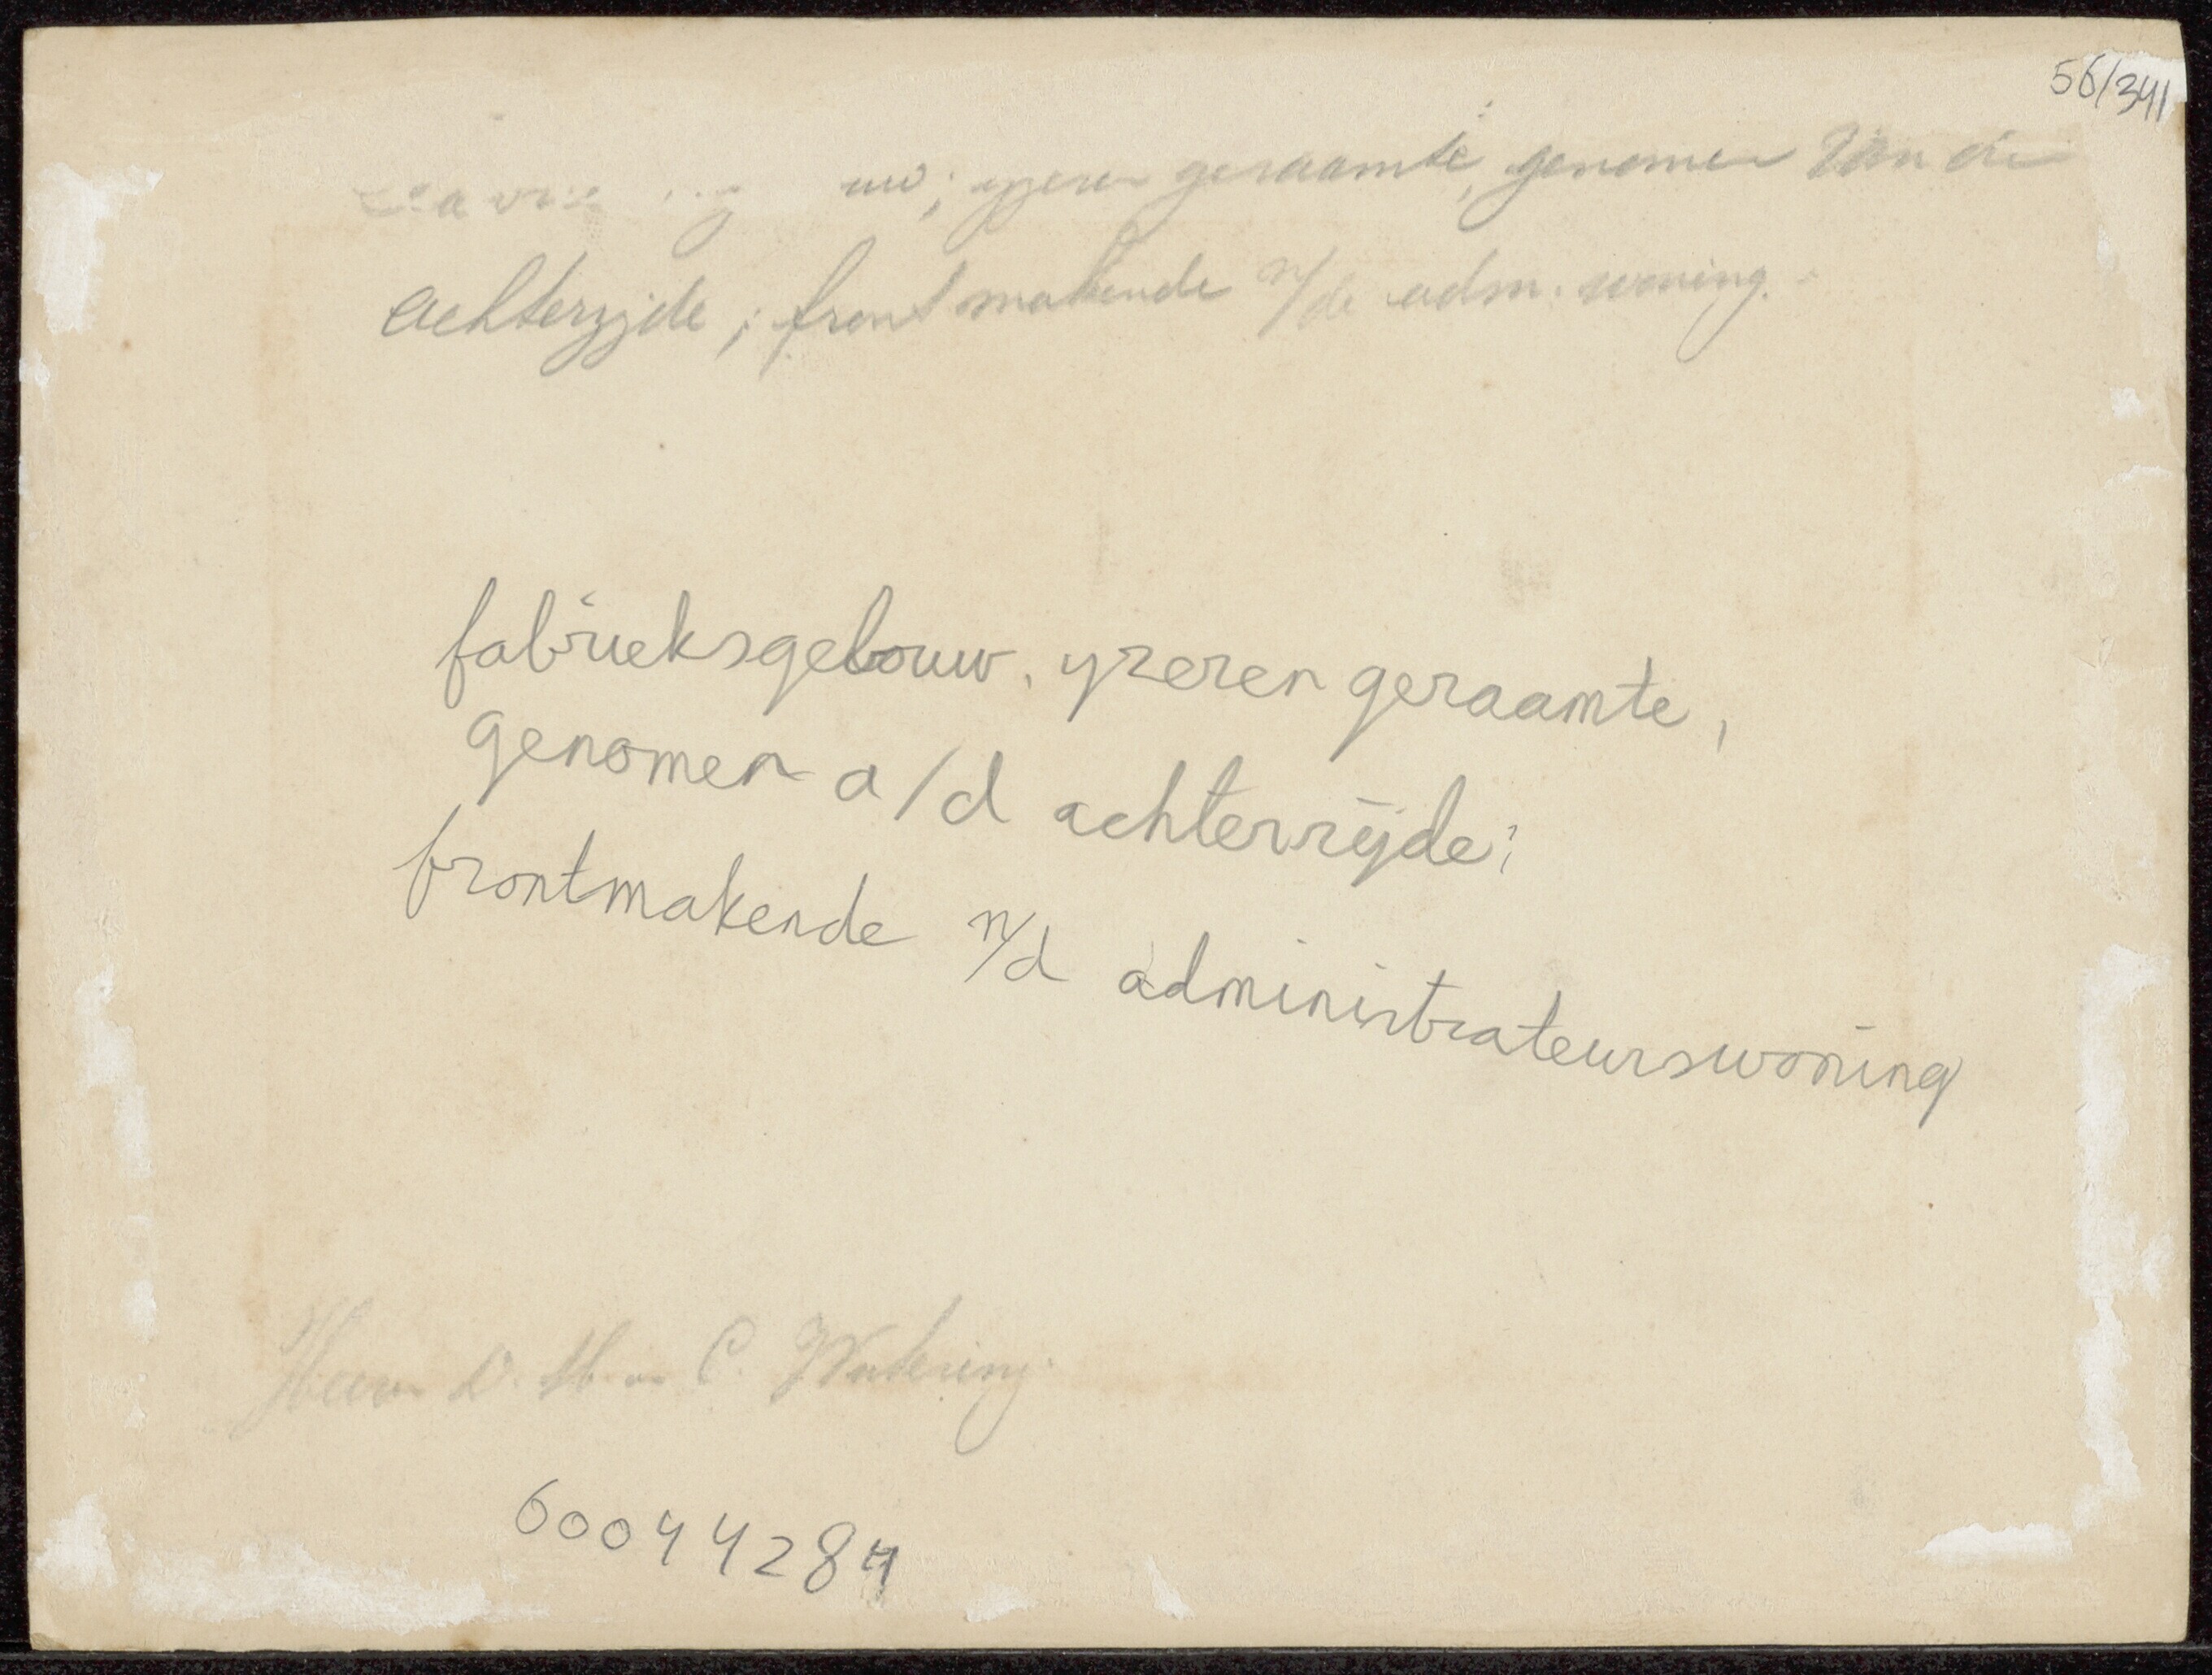 56/341
uw; yzeren geraamte, genomen van de
achterzijde; front makende n/de adm. woning.
fabrieksgebouw, yzeren geraamte,
genomen a/d achterzijde;
frontmakende n/d administrateurswoning
C. Wintering
60044284